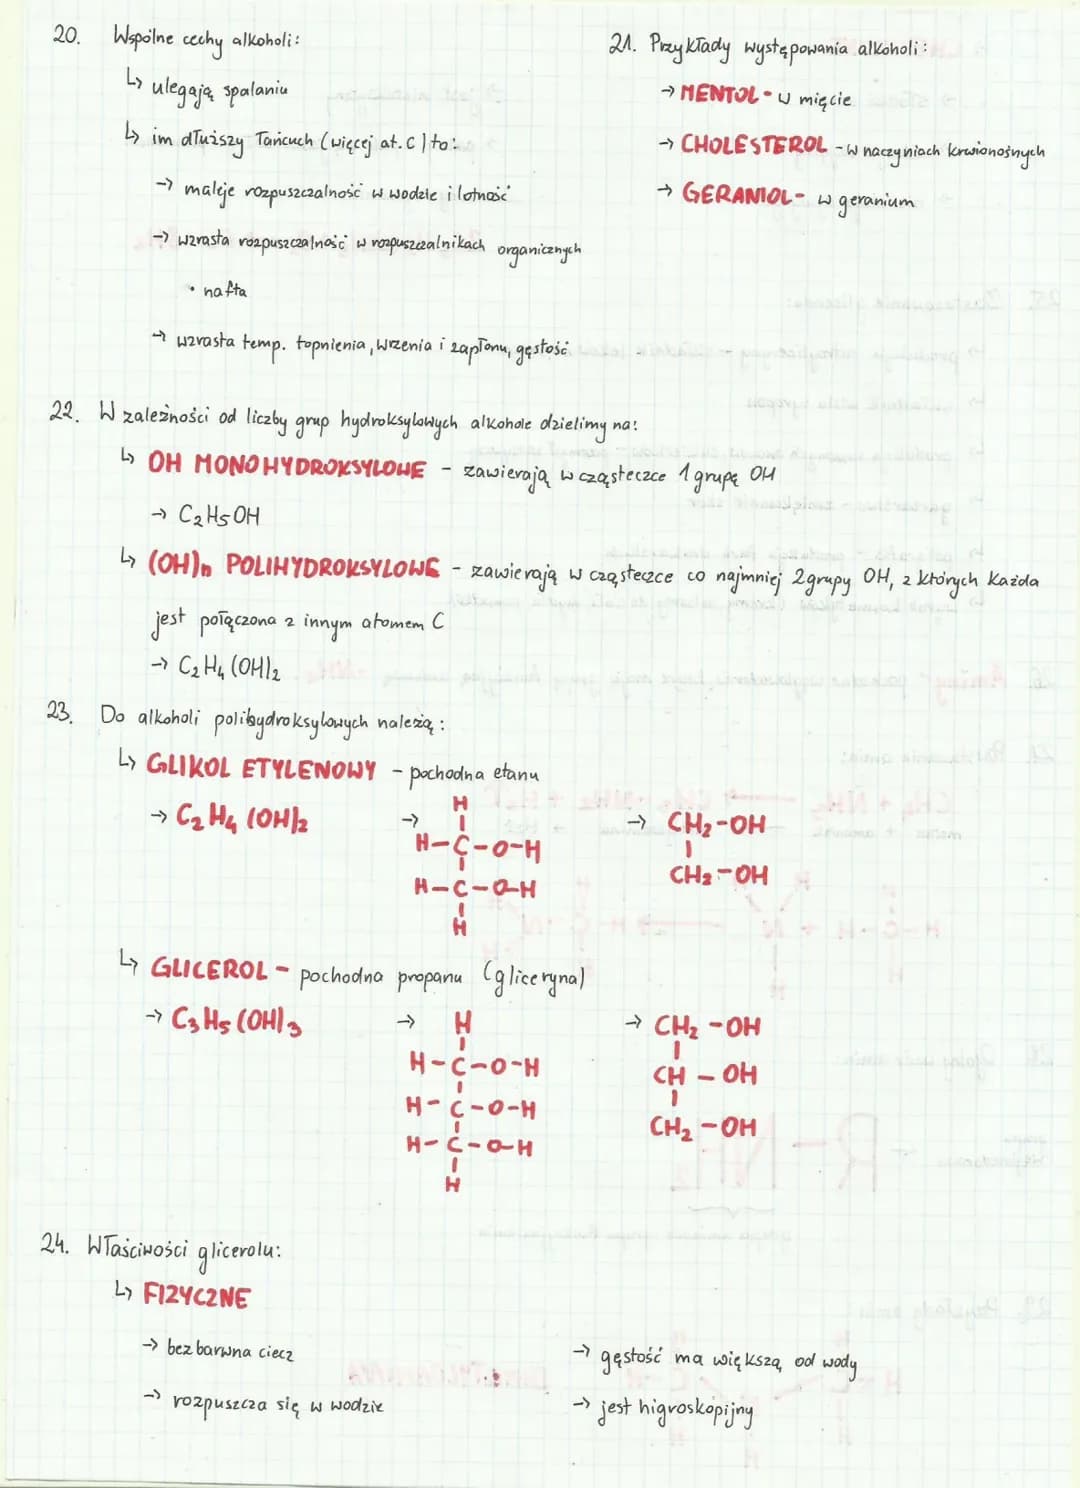 20. Wspólne cechy alkoholi:
↳ ulegają spalaniu
↳ im dłuższy łańcuch (więcej at. C) to:
→ maleje rozpuszczalność w wodzie i lotność
→ wzrasta rozpuszczalność w rozpuszczalnikach organicznych
• nafta
→ wzrasta temp. topnienia, wrzenia i zapłonu, gęstość
21. Przykłady występowania alkoholi:
→ MENTOL - w mięcie
→ CHOLESTEROL - w naczyniach krwionośnych
→ GERANIOL - w geranium
22. W zależności od liczby grup hydroksylowych alkohole dzielimy na:
↳ OH MONOHYDROKSYLOWE - zawierają w cząsteczce 1 grupę OH
→ C2H5OH
↳ (OH)n POLIHYDROKSYLOWE - zawierają w cząsteczce co najmniej 2 grupy OH, z których każda
jest połączona z innym atomem C
→ C2H4(OH)2
23. Do alkoholi polihydroksylowych należą:
↳ GLIKOL ETYLENOWY - pochodna etanu
→ C2H4(OH)2
→ H
H-C-O-H
H-C-O-H
H
→ CH2-OH
CH2-OH
↳ GLICEROL - pochodna propanu (gliceryna)
→ C3H5(OH)3
→ H
H-C-O-H
H-C-O-H
H-C-O-H
H
→ CH2-OH
CH-OH
CH2-OH
24. Właściwości glicerolu:
↳ FIZYCZNE
→ bezbarwna ciecz
→ rozpuszcza się w wodzie
→ gęstość ma większą od wody
→ jest higroskopijny